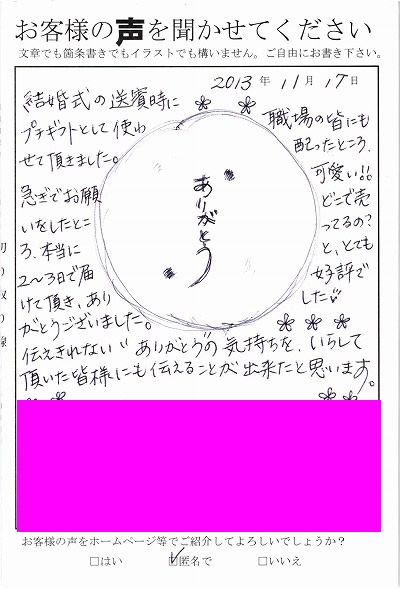 お客様の声を聞かせてください
文章でも箇条書きでもイラストでも構いません。ご自由にお書き下さい。
2013年 11月 17日
結婚式の送賓時に
プチギフトとして使わ
せて頂きました。
急ぎでお願
いをしたとこ
ろ、本当に
2〜3日で届
けて頂き、あり
がとうございました。
ありがとう
職場の皆にも
配ったところ、
可愛い!!
どこで売
ってるの?
と、とても
好評で
した
伝えきれない"ありがとう"の気持ちを、いらして
頂いた皆様にも伝えることが出来たと思います。
切り取り線
お客様の声をホームページ等でご紹介してよろしいでしょうか?
□はい ☑匿名で □いいえ